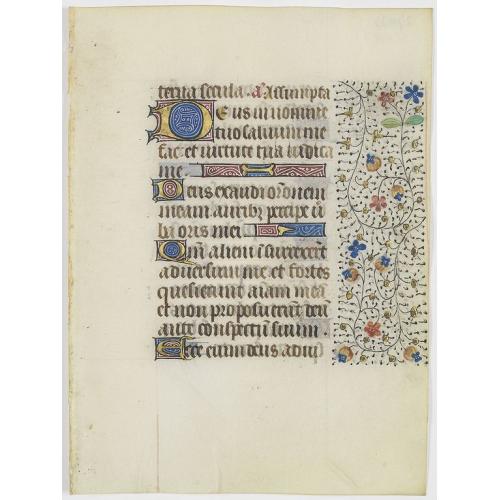 terna secula. a͞ Assumpta
Deus in nomine
tuo saluum me
fac et virtute tua iudica
me
Deus exaudi orõnem
meam auribꝫ percipe v̄
ba oris mei
Qm̄ alieni ĩsurrexer̃t
aduersum me et fortes
quesierunt aĩam meã
et non proposuerũt deũ
ante conspectũ suum.
Ecce enim deus adiu